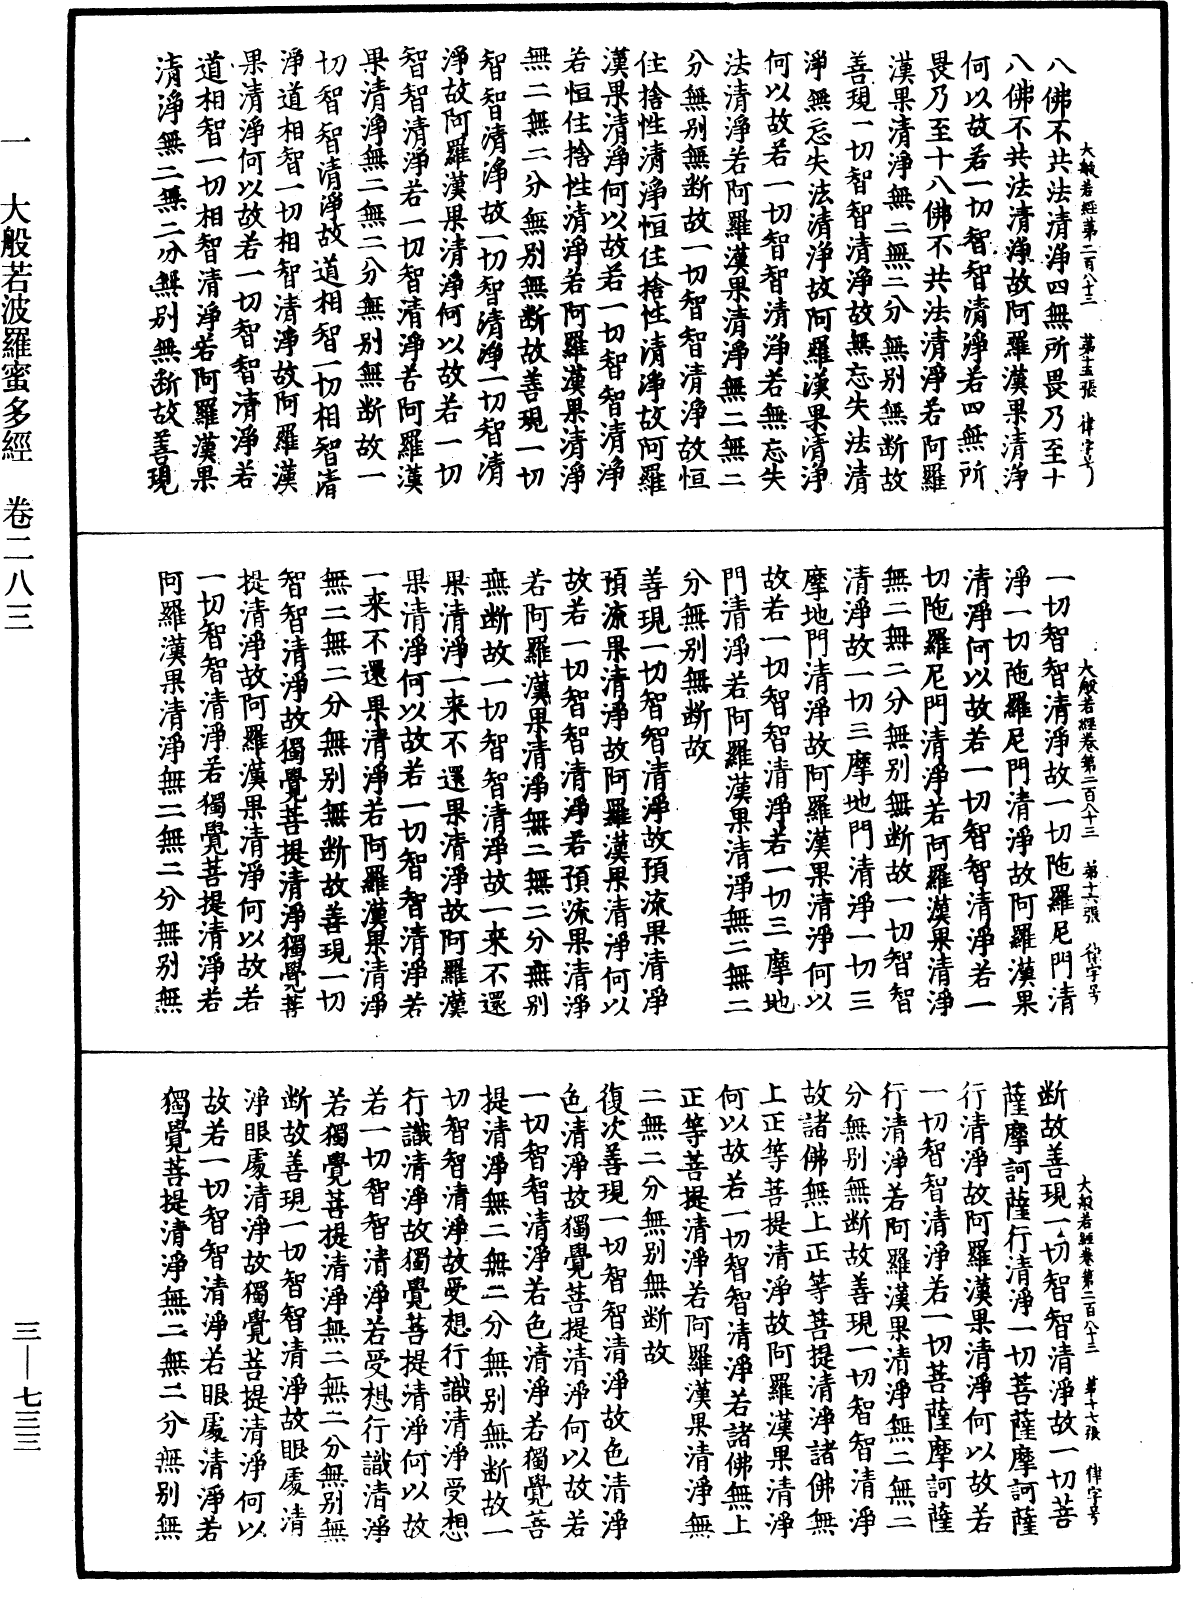 大般若經第二百八十三 第十五張 律字号
八佛不共法清淨四無所畏乃至十
八佛不共法清淨故阿羅漢果清淨
何以故若一切智智清淨若四無所
畏乃至十八佛不共法清淨若阿羅
漢果清淨無二無二分無別無斷故
善現一切智智清淨故無忘失法清
淨無忘失法清淨故阿羅漢果清淨
何以故若一切智智清淨若無忘失
法清淨若阿羅漢果清淨無二無二
分無別無斷故一切智智清淨故恒
住捨性清淨恒住捨性清淨故阿羅
漢果清淨何以故若一切智智清淨
若恒住捨性清淨若阿羅漢果清淨
無二無二分無別無斷故善現一切
智智清淨故一切智清淨一切智清
淨故阿羅漢果清淨何以故若一切
智智清淨若一切智清淨若阿羅漢
果清淨無二無二分無別無斷故一
切智智清淨故道相智一切相智清
淨道相智一切相智清淨故阿羅漢
果清淨何以故若一切智智清淨若
道相智一切相智清淨若阿羅漢果
清淨無二無二分無別無斷故善現
大般若經卷第二百八十三 第十六張 律字号
一切智智清淨故一切陁羅尼門清
淨一切陁羅尼門清淨故阿羅漢果
清淨何以故若一切智智清淨若一
切陁羅尼門清淨若阿羅漢果清淨
無二無二分無別無斷故一切智智
清淨故一切三摩地門清淨一切三
摩地門清淨故阿羅漢果清淨何以
故若一切智智清淨若一切三摩地
門清淨若阿羅漢果清淨無二無二
分無別無斷故
善現一切智智清淨故預流果清淨
預流果清淨故阿羅漢果清淨何以
故若一切智智清淨若預流果清淨
若阿羅漢果清淨無二無二分無別
無斷故一切智智清淨故一來不還
果清淨一來不還果清淨故阿羅漢
果清淨何以故若一切智智清淨若
一來不還果清淨若阿羅漢果清淨
無二無二分無別無斷故善現一切
智智清淨故獨覺菩提清淨獨覺菩
提清淨故阿羅漢果清淨何以故若
一切智智清淨若獨覺菩提清淨若
阿羅漢果清淨無二無二分無別無
大般若經卷第二百八十三 第十七張 律字号
斷故善現一切智智清淨故一切菩
薩摩訶薩行清淨一切菩薩摩訶薩
行清淨故阿羅漢果清淨何以故若
一切智智清淨若一切菩薩摩訶薩
行清淨若阿羅漢果清淨無二無二
分無別無斷故善現一切智智清淨
故諸佛無上正等菩提清淨諸佛無
上正等菩提清淨故阿羅漢果清淨
何以故若一切智智清淨若諸佛無上
正等菩提清淨若阿羅漢果清淨無
二無二分無別無斷故
復次善現一切智智清淨故色清淨
色清淨故獨覺菩提清淨何以故若
一切智智清淨若色清淨若獨覺菩
提清淨無二無二分無別無斷故一
切智智清淨故受想行識清淨受想
行識清淨故獨覺菩提清淨何以故
若一切智智清淨若受想行識清淨
若獨覺菩提清淨無二無二分無別無
斷故善現一切智智清淨故眼處清
淨眼處清淨故獨覺菩提清淨何以
故若一切智智清淨若眼處清淨若
獨覺菩提清淨無二無二分無別無
一 大般若波羅蜜多經 卷二八三
三—七三三